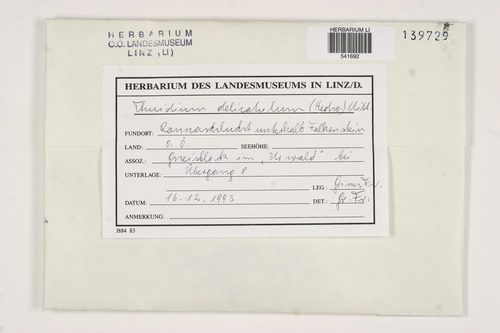 HERBARIUM
O.Ö. LANDESMUSEUM
LINZ (LI)
HERBARIUM LI
541692
139729
HERBARIUM DES LANDESMUSEUMS IN LINZ/D.
Thuidium delicatulum (Hedw.) Mitt.
FUNDORT: Rannaschlucht unterhalb Falkenstein
LAND: O.Ö. SEEHÖHE:
ASSOZ.: Gneisblock im "Urwald" bei
UNTERLAGE: Übergang 8
LEG.: Grims Fr.
DATUM: 16.12.1993 DET.: Gr. Fr.
ANMERKUNG:
1884 83